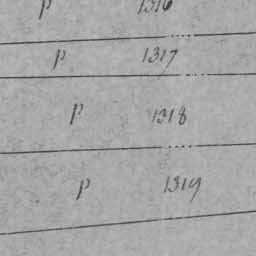 p 1316
p 1317
p 1318
p 1319